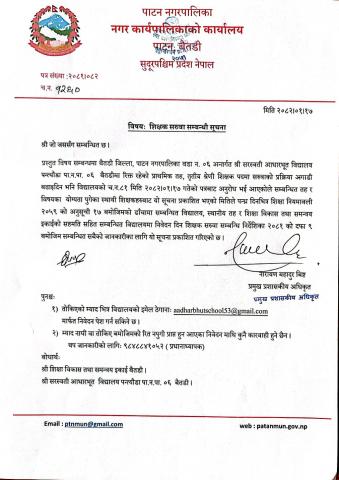 पाटन नगरपालिका
नगर कार्यपालिकाको कार्यालय
पाटन, बैतडी
सुदूरपश्चिम प्रदेश नेपाल
पत्र संख्या :२०८१/०८२
च.नं. ९२६०
मिति २०८२/०१/१७
विषयः शिक्षक सरुवा सम्बन्धी सूचना
श्री जो जससँग सम्बन्धित छ।
प्रस्तुत विषय सम्बन्धमा बैतडी जिल्ला, पाटन नगरपालिका वडा नं. ०६ अन्तर्गत श्री सरस्वती आधारभूत विद्यालय
पनचौडा पा.न.पा. ०६ बैतडीमा रिक्त रहेको प्राथमिक तह, तृतीय श्रेणी शिक्षक पदमा सरुवाको प्रक्रिया अगाडी
बढाइदिन भनि विद्यालयको च.न.८१ मिति २०८२/०१/१७ गतेको पत्रबाट अनुरोध भई आएकोले सम्बन्धित तह र
विषयका योग्यता पुगेका स्थायी शिक्षकहरुबाट यो सूचना प्रकाशित भएको मितिले पन्द्र दिनभित्र शिक्षा नियमावली
२०५९ को अनुसूची १७ बमोजिमको ढाँचामा सम्बन्धित विद्यालय, स्थानीय तह र शिक्षा विकास तथा समन्वय
इकाईको सहमति सहित सम्बन्धित विद्यालयमा निवेदन दिन शिक्षक सरुवा सम्बन्धि निर्देशिका २०८१ को दफा ९
बमोजिम सम्बन्धित सबैको जानकारीका लागि यो सूचना प्रकाशित गरिएको छ।
नारायण बहादुर बिष्ट
प्रमुख प्रशासकीय अधिकृत
प्रमुख प्रशासकीय अधिकृत
पुनश्चः
१) तोकिएको म्याद भित्र विद्यालयको इमेल ठेगानाः aadharbhutschool53@gmail.com
मार्फत निवेदन पेश गर्न सकिने छ।
२) म्याद नाघी वा तोकिए बमोजिमको रित नपुगी प्राप्त हुन आएका निवेदन माथि कुनै कारवाही हुने छैन।
थप जानकारीको लागिः ९८४८८४१०५२ (प्रधानाध्यापक)
बोधार्थः
श्री शिक्षा विकास तथा समन्वय इकाई बैतडी।
श्री सरस्वती आधारभूत विद्यालय पनचौडा पा.न.पा. ०६ बैतडी।
Email : ptnmun@gmail.com
web : patanmun.gov.np